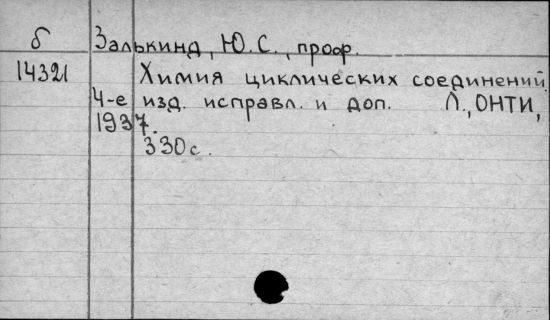 б Залькинд, Ю. С., проф.
14321 Химия циклических соединений.
4-е изд. исправл. и доп. Л., ОНТИ,
1937.
330 с.